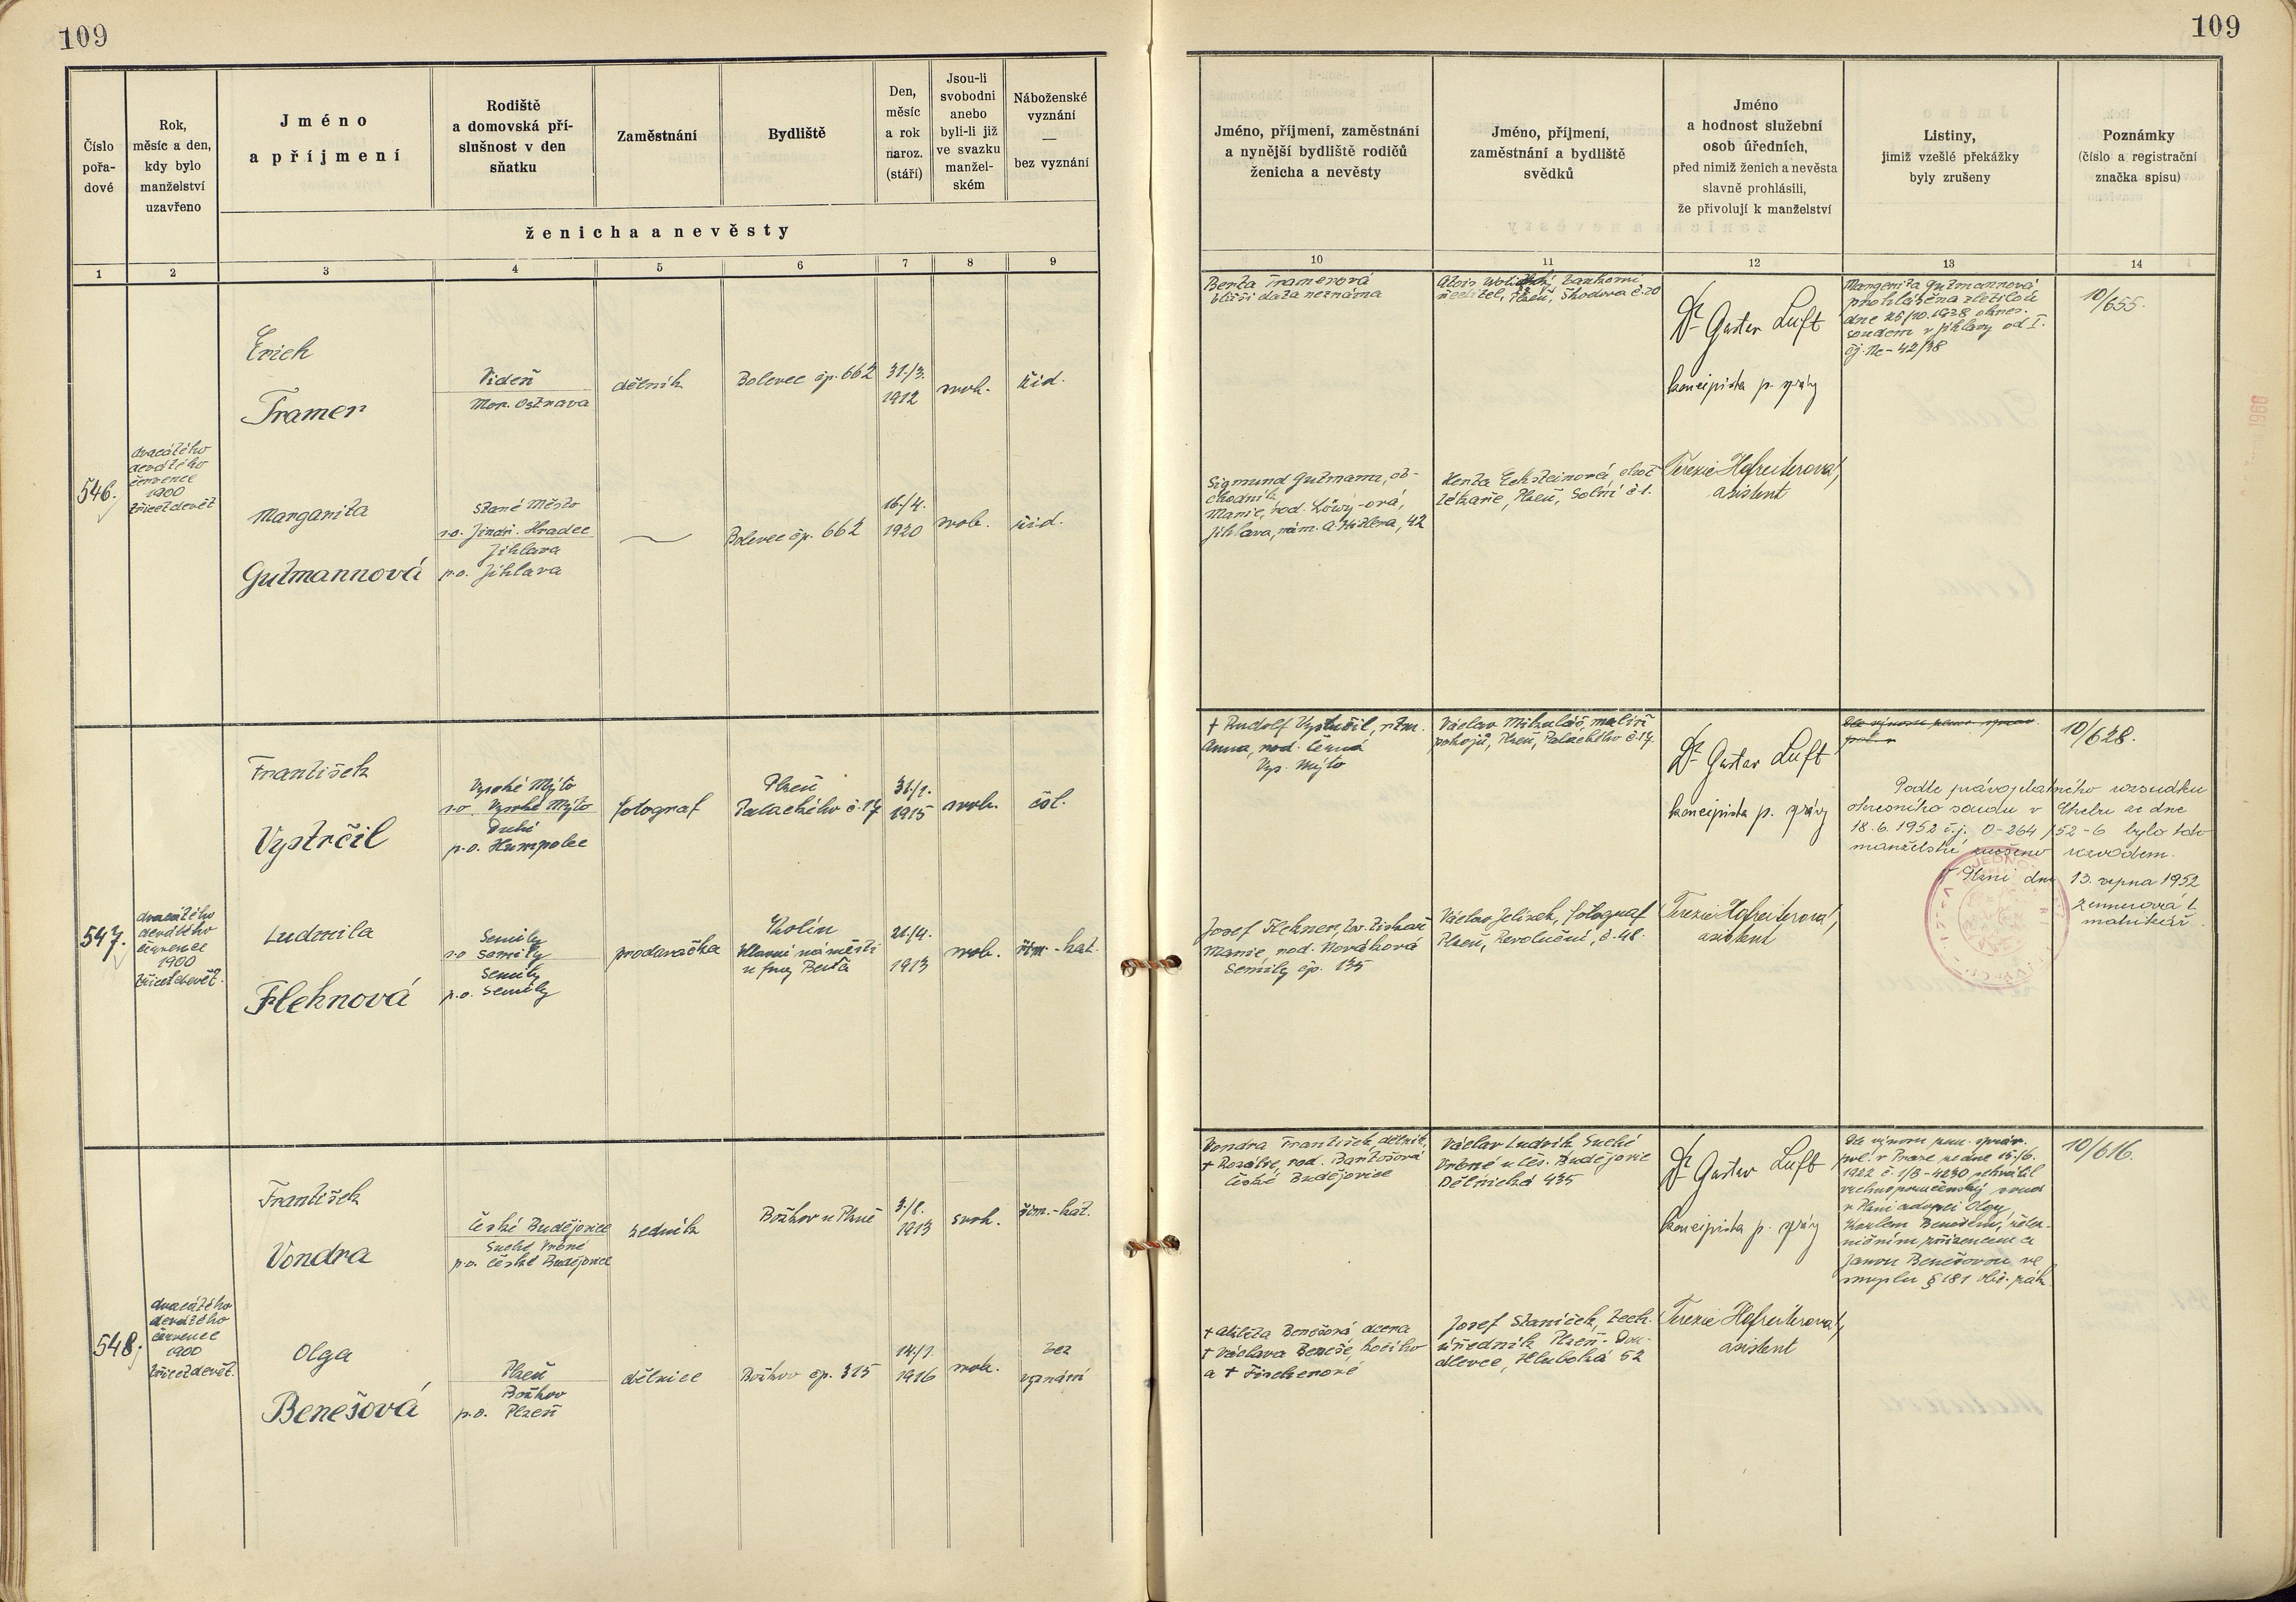 109
109
Číslo
pořa-
dové
Rok,
měsíc a den,
kdy bylo
manželství
uzavřeno
Jméno
a příjmení
Rodiště
a domovská pří-
slušnost v den
sňatku
Zaměstnání
Bydliště
Den,
měsíc
a rok
naroz.
(stáří)
Jsou-li
svobodni
anebo
byli-li již
ve svazku
manžel-
ském
Náboženské
vyznání
—
bez vyznání
ženicha a nevěsty
Jméno, příjmení, zaměstnání
a nynější bydliště rodičů
ženicha a nevěsty
Jméno, příjmení,
zaměstnání a bydliště
svědků
Jméno
a hodnost služební
osob úředních,
před nimiž ženich a nevěsta
slavně prohlásili,
že přivolují k manželství
Listiny,
jimiž vzešlé překážky
byly zrušeny
Poznámky
(číslo a registrační
značka spisu)
1 2 3 4 5 6 7 8 9 10 11 12 13 14
546.
dvacátého
devátého
července
1900
třicetdevět
Erich
Tramer
Vídeň
Mor. Ostrava
dělník
Bolevec čp. 662
31./3.
1912
svob.
žid.
Berta Tramerová
bližší data neznáma
Alois
ředitel, Plzeň, Škodova č. 20
Dr Gustav Luft
koncipista p. správy
Margarita Gutmannová
prohlášena zletilou
dne 25/10. 1938 okres.
soudem v Jihlavy od I.
čj. Nc - 42/38
10/655.
Margarita
Gutmannová
Staré Město
s.o. Jindř. Hradec
Jihlava
p.o. Jihlava
Bolevec čp. 662
16./4.
1920
svob.
žid.
Sigmund Gutmann, ob-
chodník
Marie, rod. Löwy-ová,
Jihlava, nám. A. Hitlera, 42
Herta Ecksteinová, choť
lékaře, Plzeň, Solní č. 1.
Terezie Hofreiterová,
asistent
547.
dvacátého
devátého
července
1900
třicetdevět.
František
Vystrčil
Vysoké Mýto
s.o. Vysoké Mýto
p.o. Humpolec
fotograf
Plzeň
Palackého č. 17
31./1.
1915
svob.
čsl.
† Rudolf Vystrčil,
Anna, rod. Černá
Vys. Mýto
Václav Mikuláš, malíř
pokojů, Plzeň, Palackého č. 17.
Dr Gustav Luft
koncipista p. správy
10/628.
Podle právoplatného rozsudku
okresního soudu v Chebu ze dne
18. 6. 1952 č.j. O-264/52-6 bylo toto
manželství zrušeno rozvodem.
V Plzni dne 13. srpna 1952
matrikář.
Ludmila
Flehnová
Semily
s.o. Semily
Semily
p.o. Semily
prodavačka
Kolín
Hlavní náměstí
u fmy Baťa
21./4.
1913
svob.
řím.-kat.
Josef Flehner,
Marie, rod. Nováková
Semily čp. 135
Václav Jelínek, fotograf
Plzeň, Revoluční, č. 48.
Terezie Hofreiterová,
asistent
548.
dvacátého
devátého
července
1900
třicetdevět.
František
Vondra
České Budějovice
Suché Vrbné
p.o. České Budějovice
zedník
Božkov u Plzně
3./8.
1913
svob.
řím.-kat.
Vondra František, dělník,
† Rozálie, rod. Bartošová
České Budějovice
Václav Ludvík Suché
Vrbné u Čes. Budějovic
Dělnická 435
Dr Gustav Luft
koncipista p. správy
Dle výnosu zem. správ.
pol. v Praze ze dne 15./6.
1922 č. 1/B-4230 schválil
vrchnoporučenský soud
v Plzni adopci Olgy
Karlem Benešem, želez-
ničním zřízencem a
Janou Benešovou ve
smyslu § 181 obč. zák.
10/616.
Olga
Benešová
Plzeň
Božkov
p.o. Plzeň
dělnice
Božkov čp. 315
1916
svob.
bez
vyznání
† Alžběta Benešová, dcera
† Václava Beneše, kočího
a †
Josef Staníček, tech.
úředník Plzeň - Dou-
dlevce, Hluboká 52
Terezie Hofreiterová,
asistent